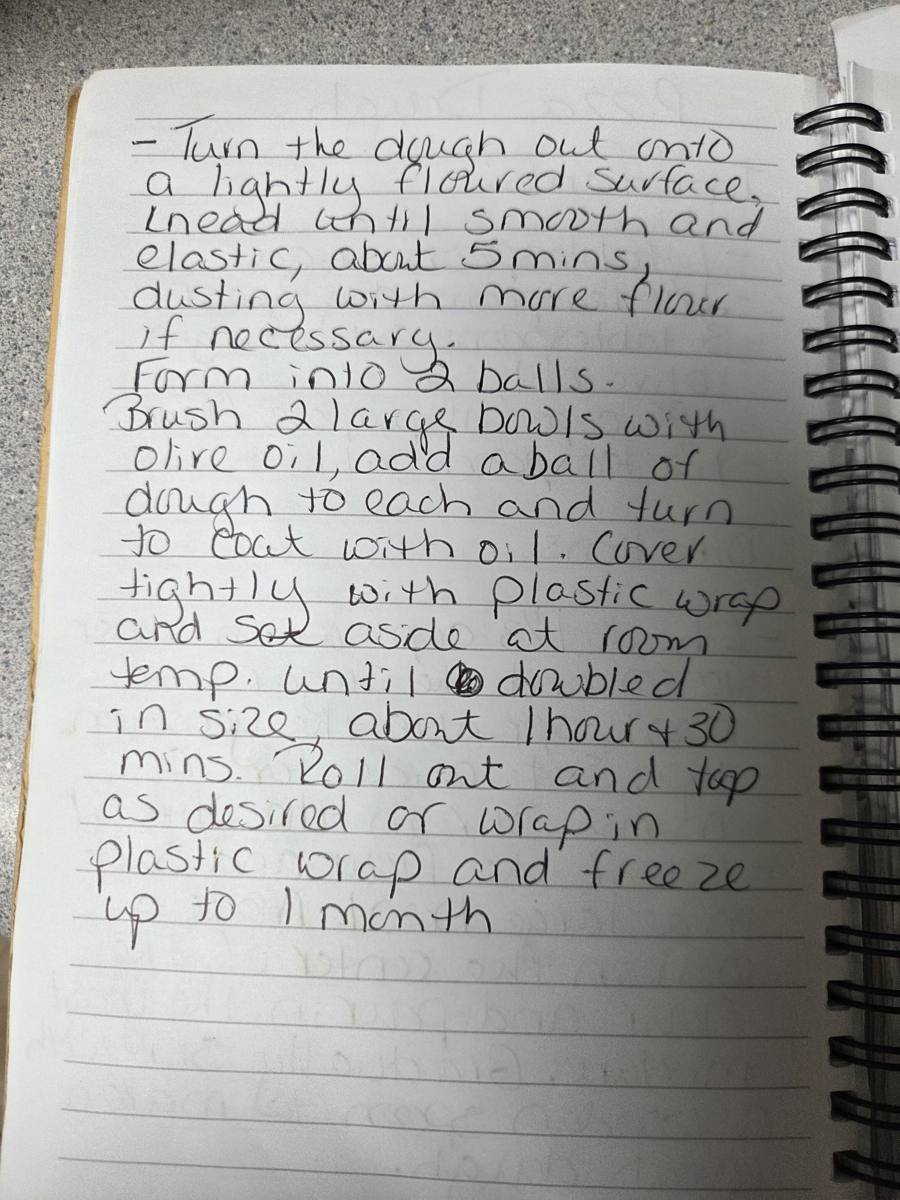 - Turn the dough out onto
a lightly floured surface,
knead until smooth and
elastic, about 5 mins,
dusting with more flour
if necessary.
Form into 2 balls.
Brush 2 large bowls with
olive oil, add a ball of
dough to each and turn
to coat with oil. Cover
tightly with plastic wrap
and set aside at room
temp. until doubled
in size, about 1 hour + 30
mins. Roll out and top
as desired or wrap in
plastic wrap and freeze
up to 1 month